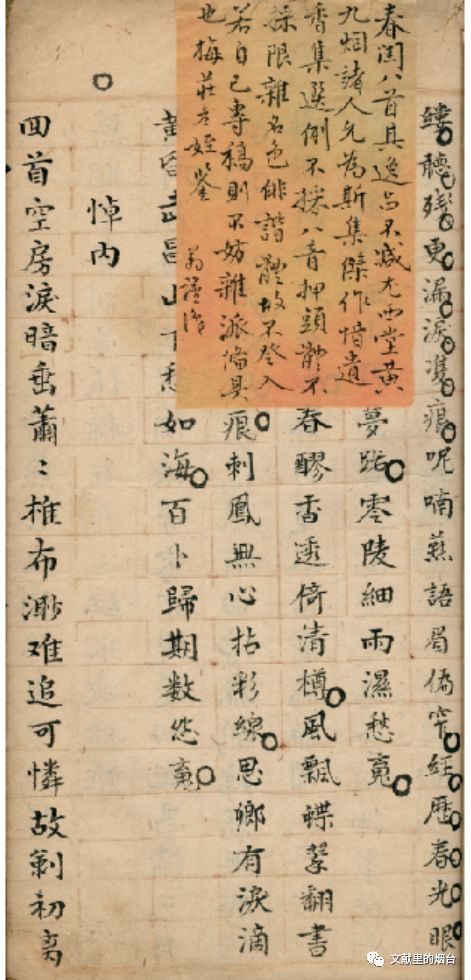 縷聽殘更漏淚雙痕呢喃燕語眉倦窄經歷春光眼
春閨八首具逸品不減尤西堂黃
九烟諸人允為斯集傑作惜遺
香集選例不採八音押頭體不
採限雜名色俳諧體故不登入
若自己專稿則不妨雜派備具
也梅莊老姪鑒
夢零陵細雨濕愁
春醪香透倚清樽風飄蝶翻書
痕刺鳳無心拈彩線思鄉有淚滴
黃昏武昌山下愁如海百卜歸期數
悼內
回首空房淚暗垂蕭〻椎布渺难追可憐故劍初离
文献里的烟台